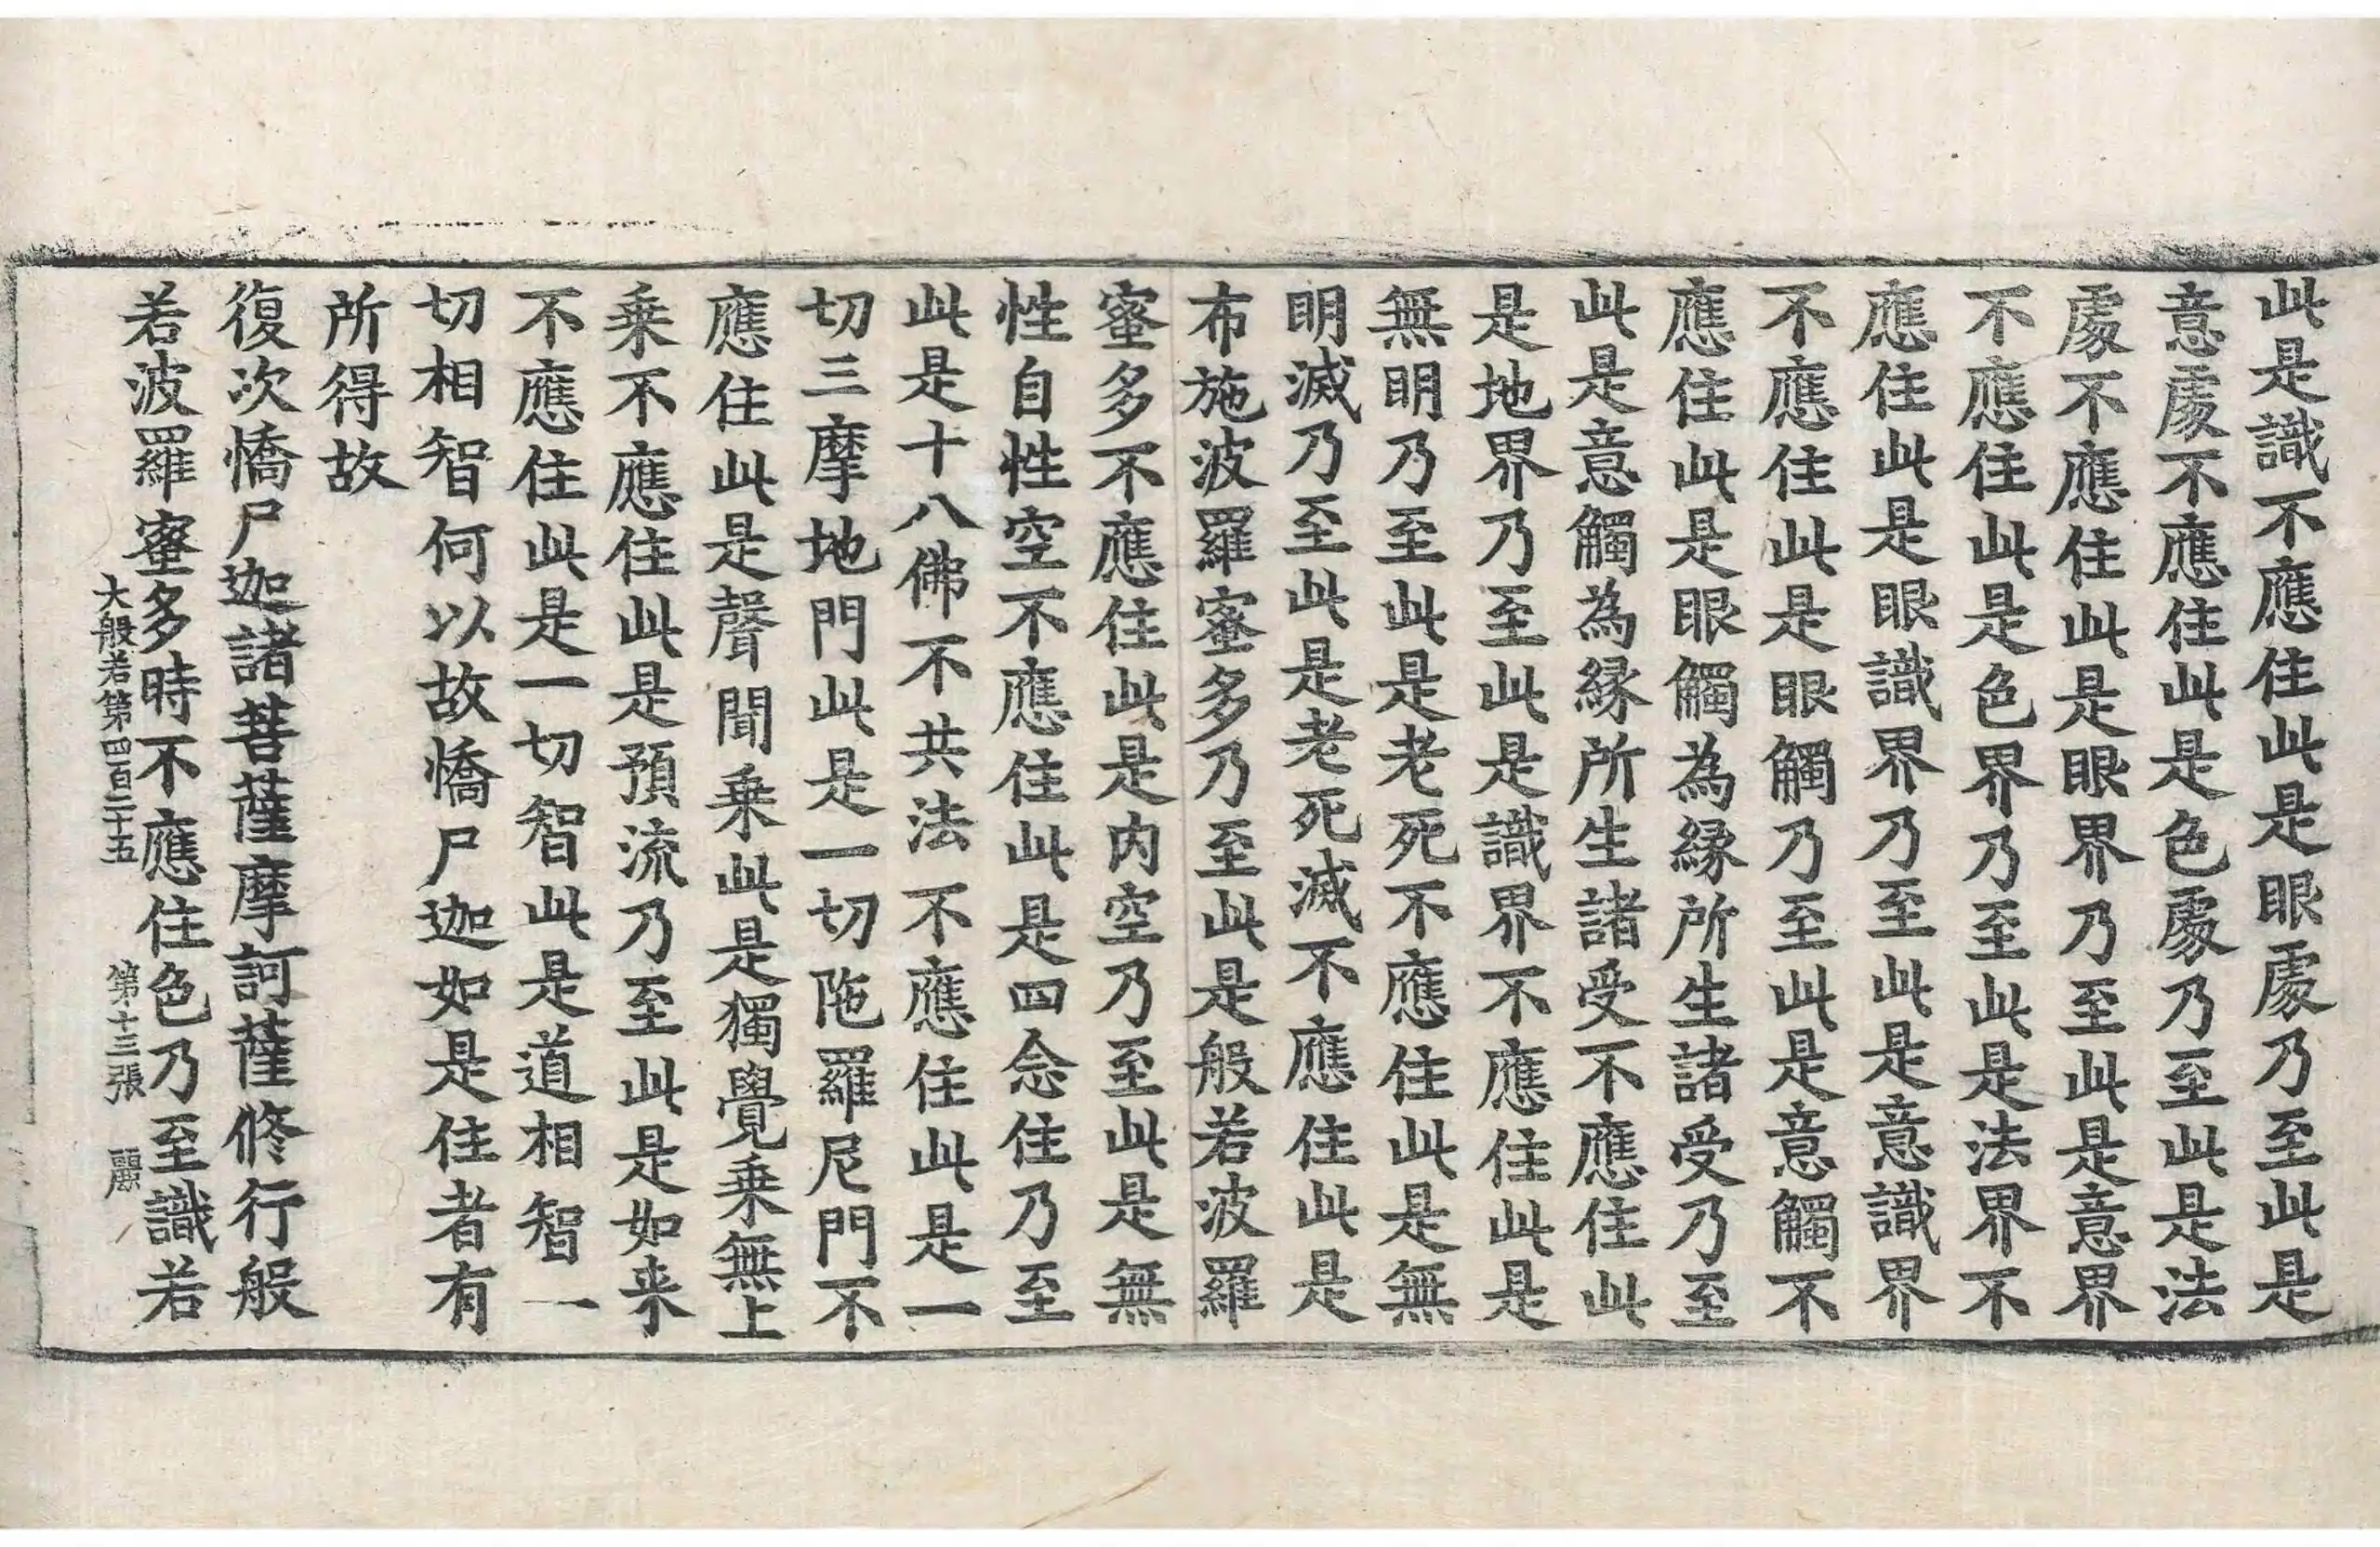 此是識不應住此是眼處乃至此是
意處不應住此是色處乃至此是法
處不應住此是眼界乃至此是意界
不應住此是色界乃至此是法界不
應住此是眼識界乃至此是意識界
不應住此是眼觸乃至此是意觸不
應住此是眼觸為緣所生諸受乃至
此是意觸為緣所生諸受不應住此
是地界乃至此是識界不應住此是
無明乃至此是老死不應住此是無
明滅乃至此是老死滅不應住此是
布施波羅蜜多乃至此是般若波羅
蜜多不應住此是內空乃至此是無
性自性空不應住此是四念住乃至
此是十八佛不共法不應住此是一
切三摩地門此是一切陁羅尼門不
應住此是聲聞乗此是獨覺乗無上
乗不應住此是預流乃至此是如来
不應住此是一切智此是道相智一
切相智何以故憍尸迦如是住者有
所得故
復次憍尸迦諸菩薩摩訶薩修行般
若波羅蜜多時不應住色乃至識若
大般若第四百二十五 第十三張 麗